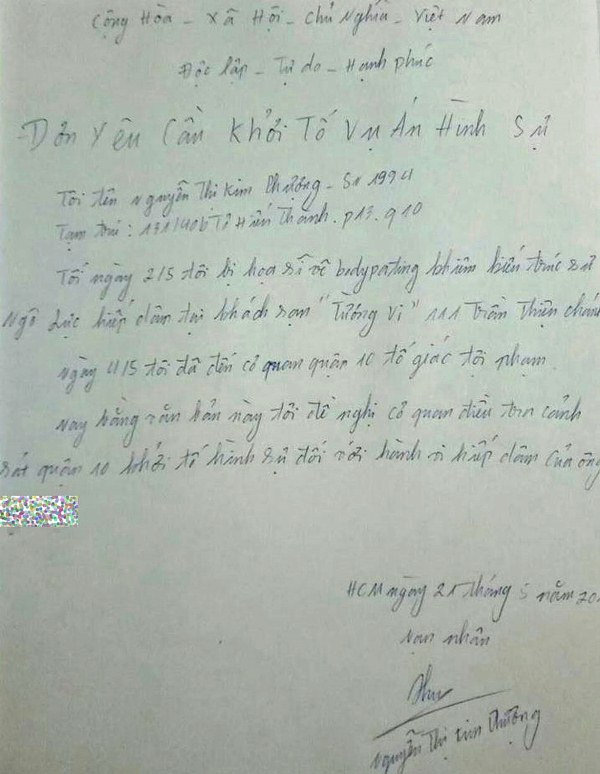 Cộng Hòa - Xã Hội - Chủ Nghĩa - Việt Nam
Độc lập - Tự do - Hạnh phúc
- Đơn Yêu Cầu Khởi Tố Vụ Án Hình Sự
Tôi tên Nguyễn Thị Kim Phượng - Sn 1994
Tạm trú: Tô Hiến Thành. p13. q10
Tối ngày 2/5 tôi bị họa sĩ vẽ bodypating kiêm kiến trúc sư
Ngô Lực hiếp dâm tại khách sạn "Tường Vi" 111 trần thiện chánh
ngày 4/5 tôi đã đến cơ quan quận 10 tố giác tội phạm.
nay bằng văn bản này tôi đề nghị cơ quan điều tra cảnh
sát quận 10 khởi tố hình sự đối với hành vi hiếp dâm của ông
HCM ngày tháng 5 năm 20
nạn nhân
Nguyễn Thị Kim Phượng